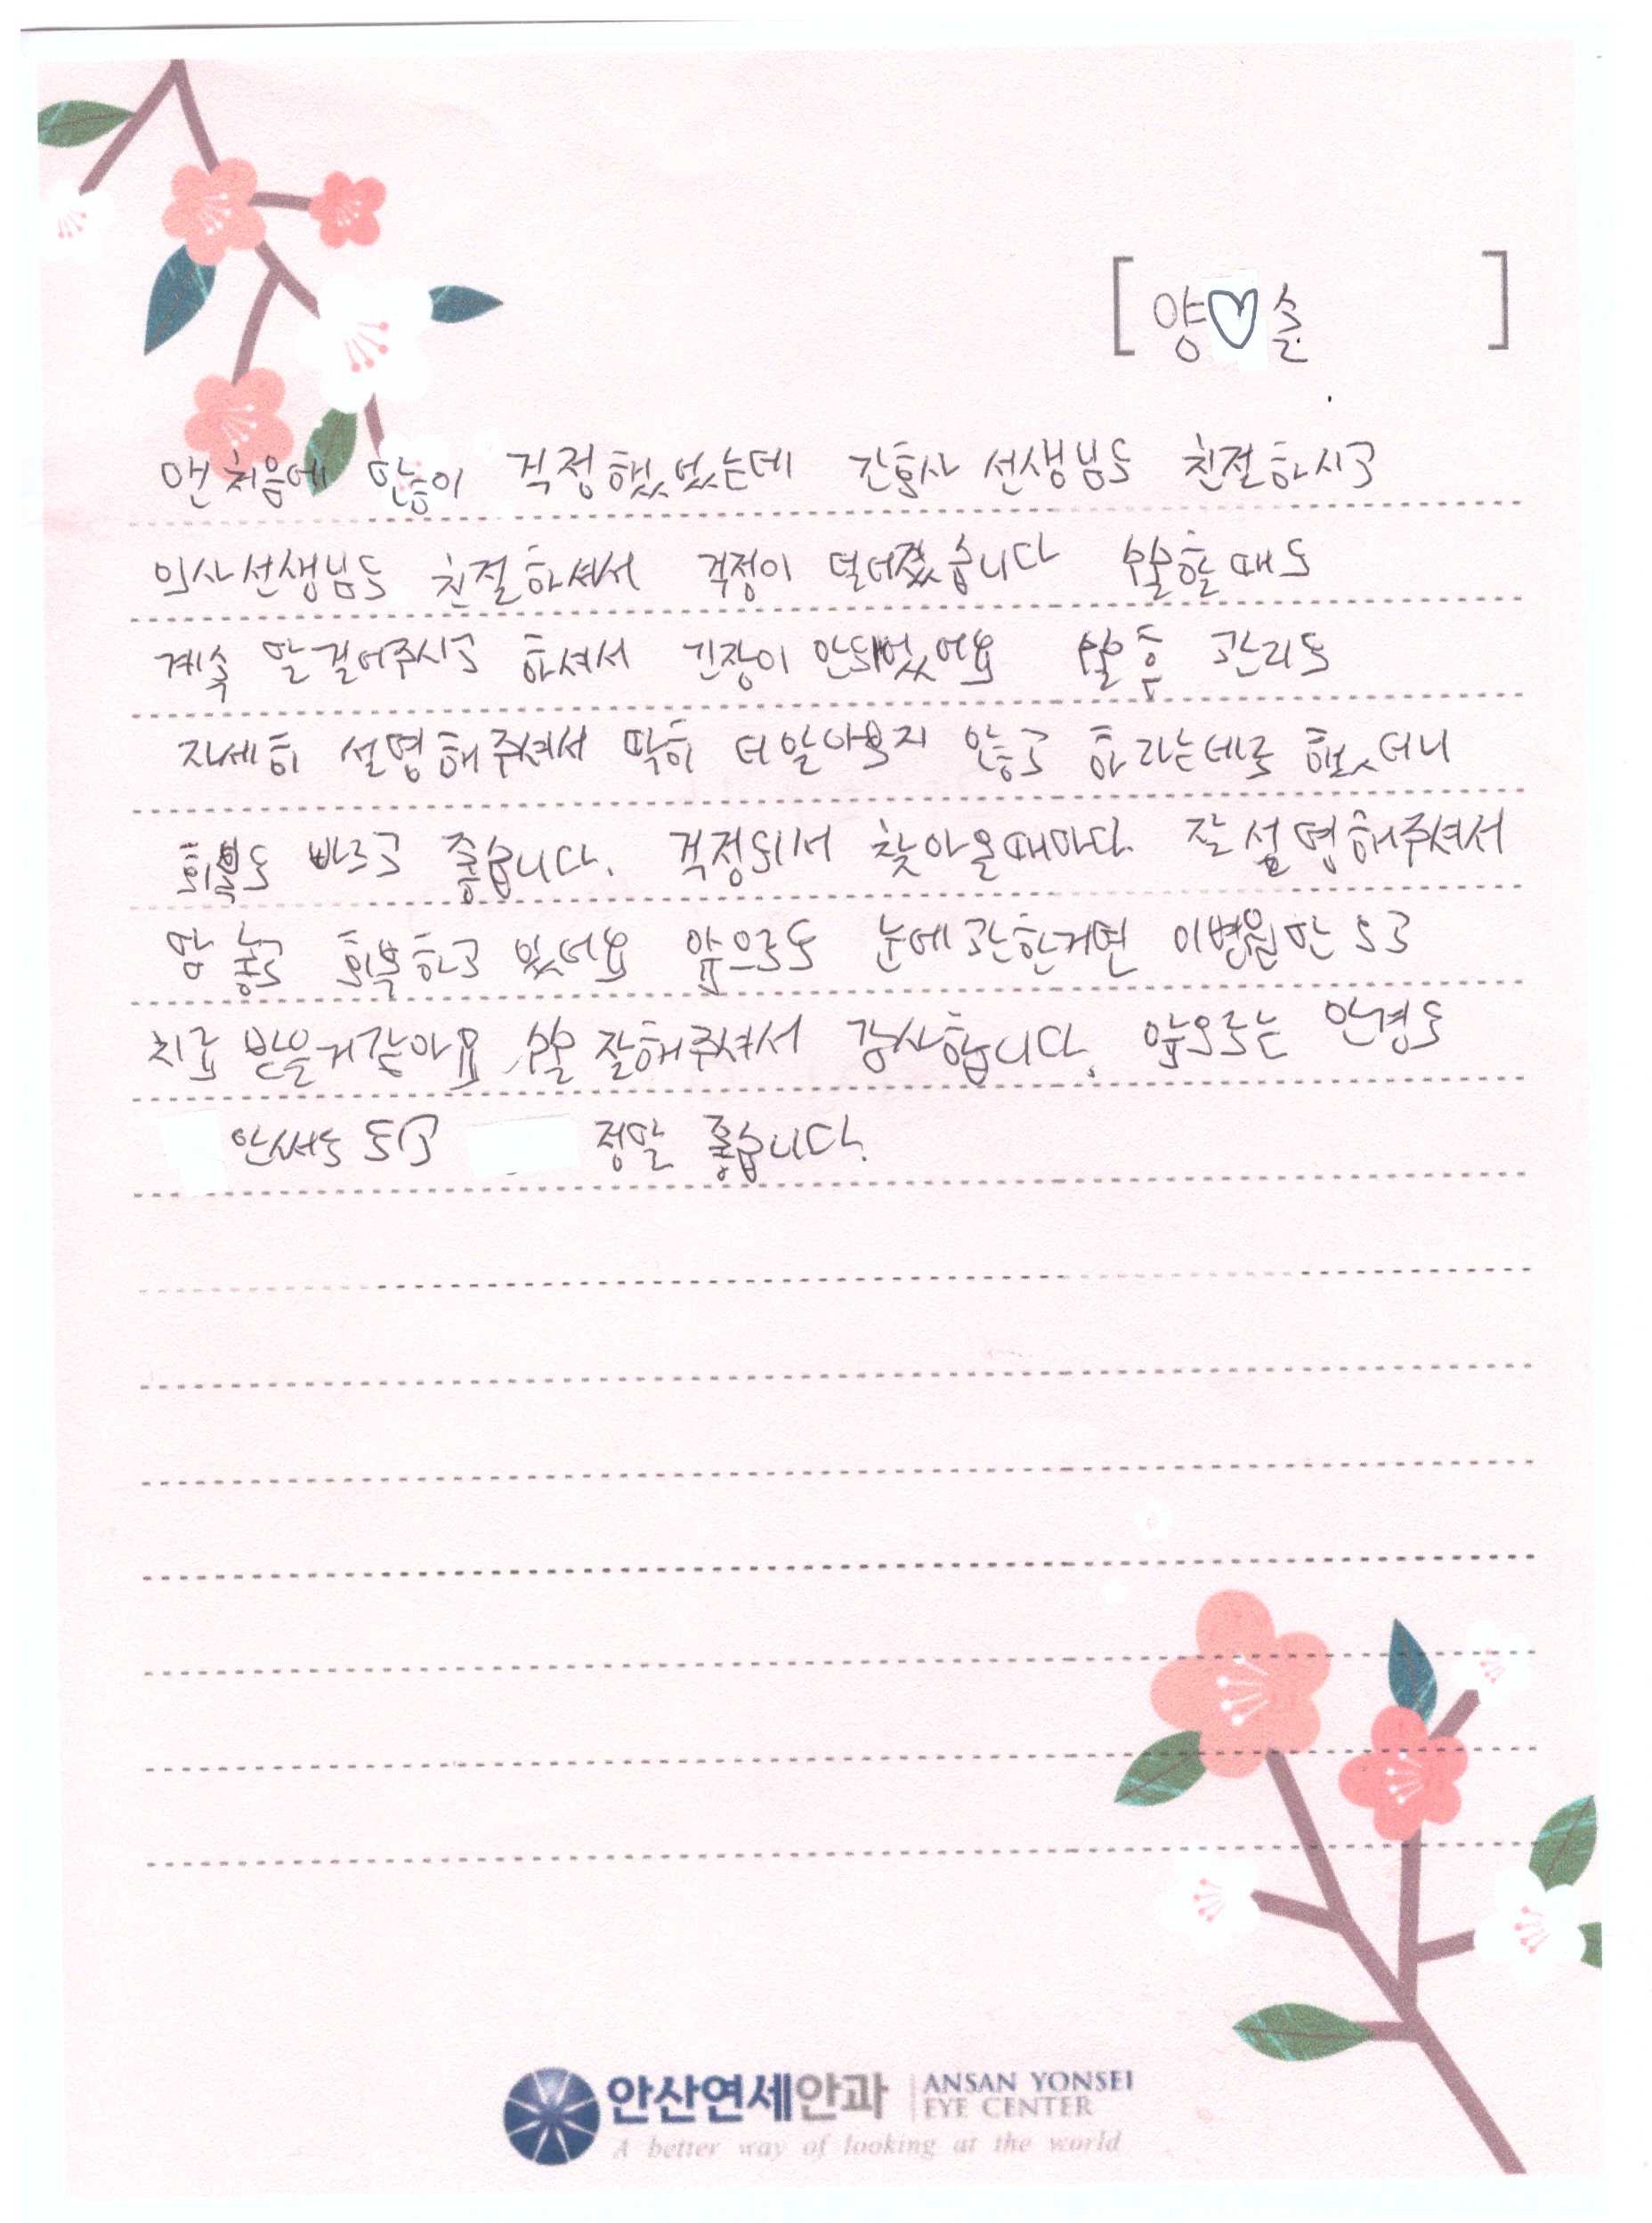 [ 양♡솔 ]
맨처음에 많이 걱정했었는데 간호사 선생님도 친절하시고
의사선생님도 친절하셔서 걱정이 덜어졌습니다 수술할때도
계속 말걸어주시고 하셔서 긴장이 안되었어요 수술후 관리도
자세히 설명해주셔서 딱히 더알아보지 않고 하라는데로 했더니
회복도 빠르고 좋습니다. 걱정되서 찾아올때마다 잘설명해주셔서
맘 놓고 회복하고 있어요 앞으로도 눈에관한거면 이병원만 오고
치료 받을거같아요 수술 잘해주셔서 감사합니다. 앞으로는 안경도
안써도 되고 정말 좋습니다.
안산연세안과 ANSAN YONSEI
EYE CENTER
A better way of looking at the world